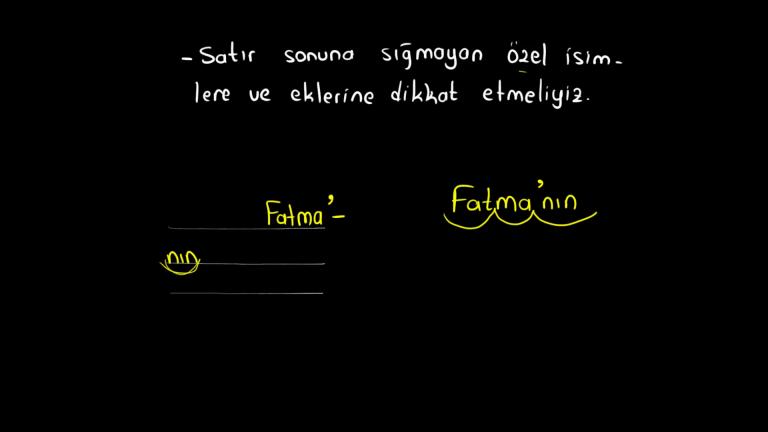 - Satır sonuna sığmayan özel isim-
lere ve eklerine dikkat etmeliyiz.
Fatma'-
nın
Fatma'nın